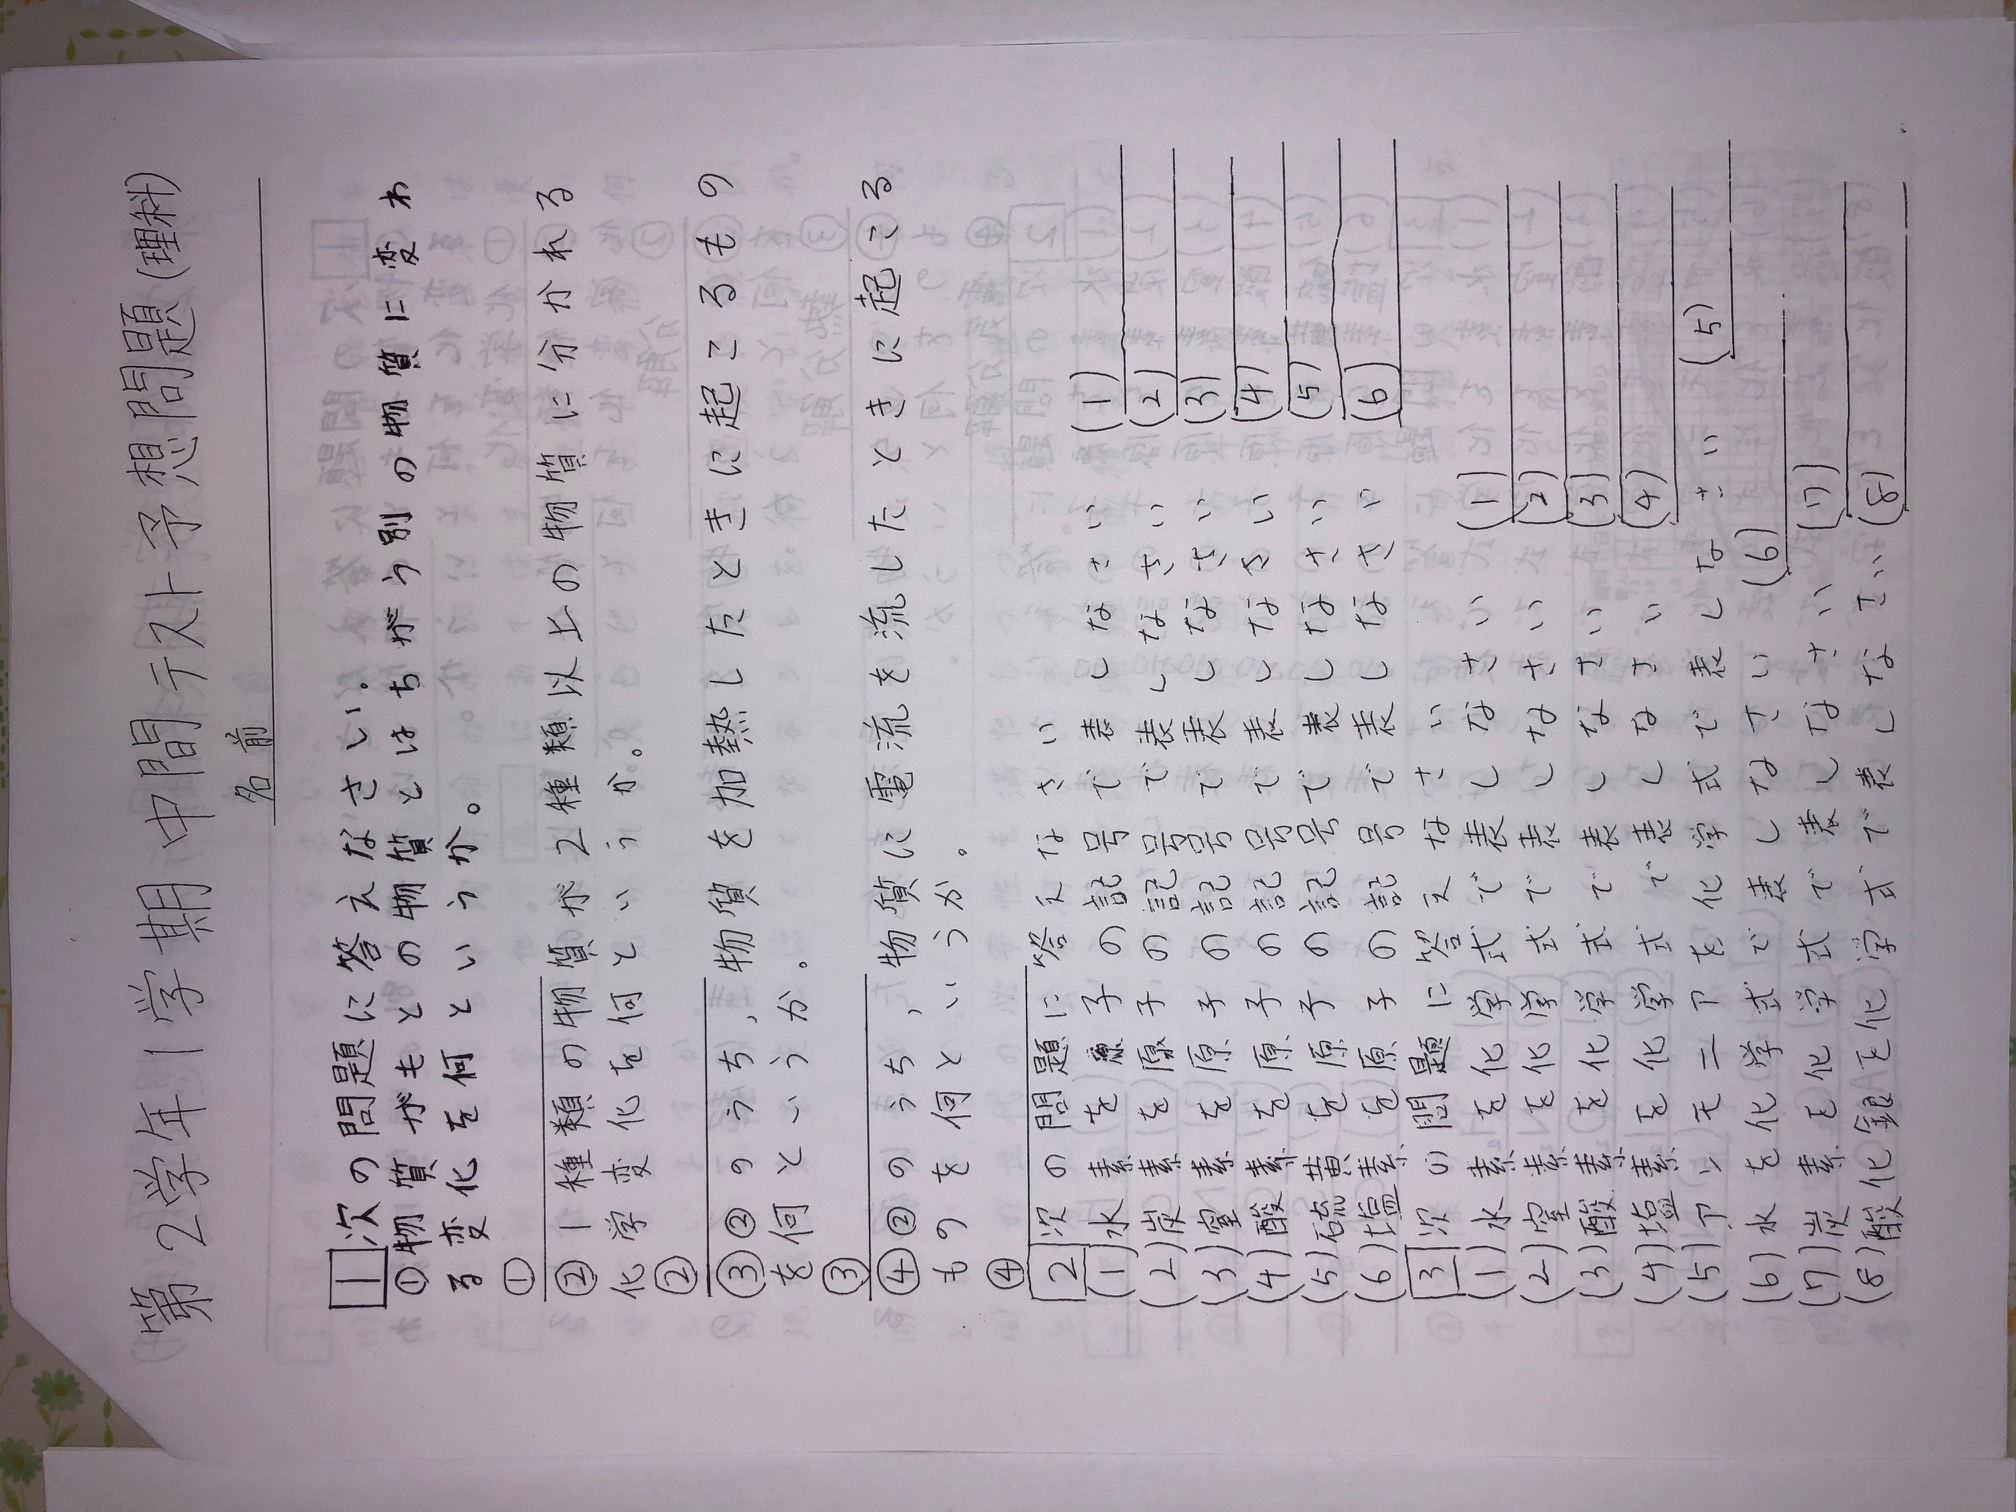 第2学年1学期 中間テスト予想問題(理科)
名前
1 次の問題に答えなさい。
①物質がもとの物質とはちがう別の物質に変わ
る変化を何というか。
①
② 1種類の物質が2種類以上の物質に分かれる
化学変化を何というか。
②
③②のうち、物質を加熱したときに起こるもの
を何というか。
③
④②のうち、物質に電流を流したときに起こる
ものを何というか。
④
2 次の問題に答えなさい
(1)水素を原子の記号で表しなさい (1)
(2)炭素を原子の記号で表しなさい (2)
(3)窒素を原子の記号で表しなさい (3)
(4)酸素を原子の記号で表しなさい (4)
(5)硫黄を原子の記号で表しなさい (5)
(6)塩素を原子の記号で表しなさい (6)
3 次の問題に答えなさい
(1)水素を化学式で表しなさい (1)
(2)窒素を化学式で表しなさい (2)
(3)酸素を化学式で表しなさい (3)
(4)塩素を化学式で表しなさい (4)
(5)アンモニアを化学式で表しなさい (5)
(6)水を化学式で表しなさい (6)
(7)炭素を化学式で表しなさい (7)
(8)酸化銀を化学式で表しなさい (8)